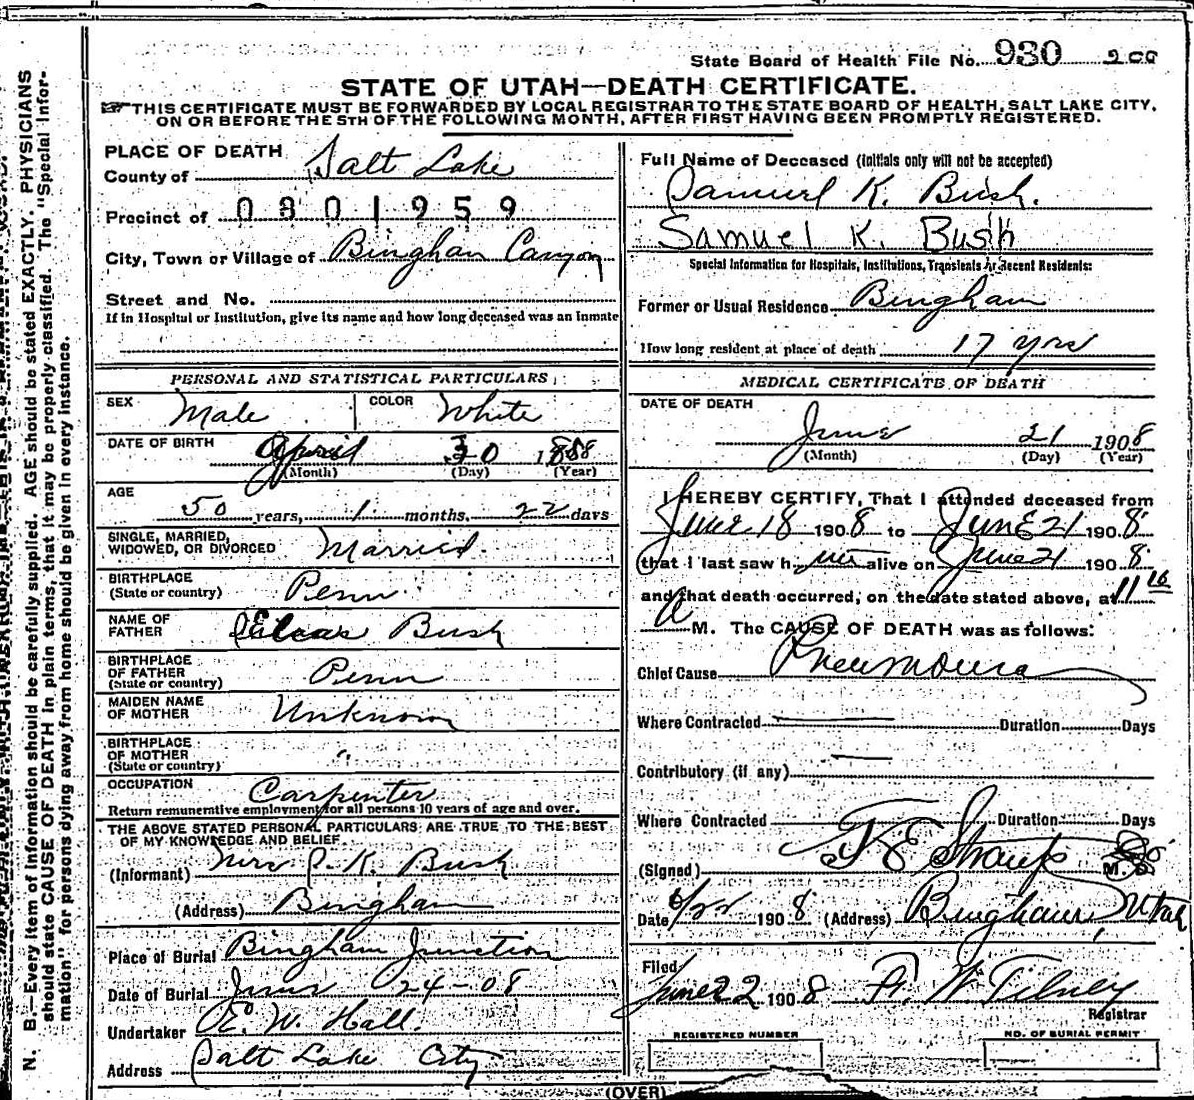 State Board of Health File No. 930 200
STATE OF UTAH—DEATH CERTIFICATE.
THIS CERTIFICATE MUST BE FORWARDED BY LOCAL REGISTRAR TO THE STATE BOARD OF HEALTH, SALT LAKE CITY,
ON OR BEFORE THE 5TH OF THE FOLLOWING MONTH, AFTER FIRST HAVING BEEN PROMPTLY REGISTERED.
PLACE OF DEATH
County of Salt Lake
Precinct of 0801959
City, Town or Village of Bingham Canyon
Street and No.
If in Hospital or Institution, give its name and how long deceased was an inmate
PERSONAL AND STATISTICAL PARTICULARS
SEX Male COLOR White
DATE OF BIRTH April 30 1858
(Month) (Day) (Year)
AGE
50 years, 1 months, 22 days
SINGLE, MARRIED,
WIDOWED, OR DIVORCED Married
BIRTHPLACE
(State or country) Penn
NAME OF
FATHER Bush
BIRTHPLACE
OF FATHER
(State or country) Penn
MAIDEN NAME
OF MOTHER Unknown
BIRTHPLACE
OF MOTHER
(State or country) "
OCCUPATION Carpenter
Return remunerative employment for all persons 10 years of age and over.
THE ABOVE STATED PERSONAL PARTICULARS ARE TRUE TO THE BEST
OF MY KNOWLEDGE AND BELIEF.
(Informant) Mrs S. K. Bush
(Address) Bingham
Place of Burial Bingham Junction
Date of Burial June 24-08
Undertaker E. W. Hall.
Address Salt Lake City
Full Name of Deceased (initials only will not be accepted)
Samuel K. Bush.
Samuel K. Bush
Special Information for Hospitals, Institutions, Transients or Recent Residents:
Former or Usual Residence Bingham
How long resident at place of death 17 yrs
MEDICAL CERTIFICATE OF DEATH
DATE OF DEATH
June 21 1908
(Month) (Day) (Year)
I HEREBY CERTIFY, That I attended deceased from
June 18 1908 to June 21 1908
that I last saw him alive on June 21 1908
and that death occurred, on the date stated above, at 11 10
A M. The CAUSE OF DEATH was as follows:
Chief Cause Pneumonia
Where Contracted Duration Days
Contributory (if any)
Where Contracted Duration Days
(Signed) F E Straup M. D.
Date 6/22 1908 (Address) Bingham, Utah
Filed
June 22 1908 F. W. Tilney
Registrar
REGISTERED NUMBER NO. OF BURIAL PERMIT
(OVER)
N. B.—Every item of information should be carefully supplied. AGE should be stated EXACTLY. PHYSICIANS
should state CAUSE OF DEATH in plain terms, that it may be properly classified. The "Special Infor-
mation" for persons dying away from home should be given in every instance.